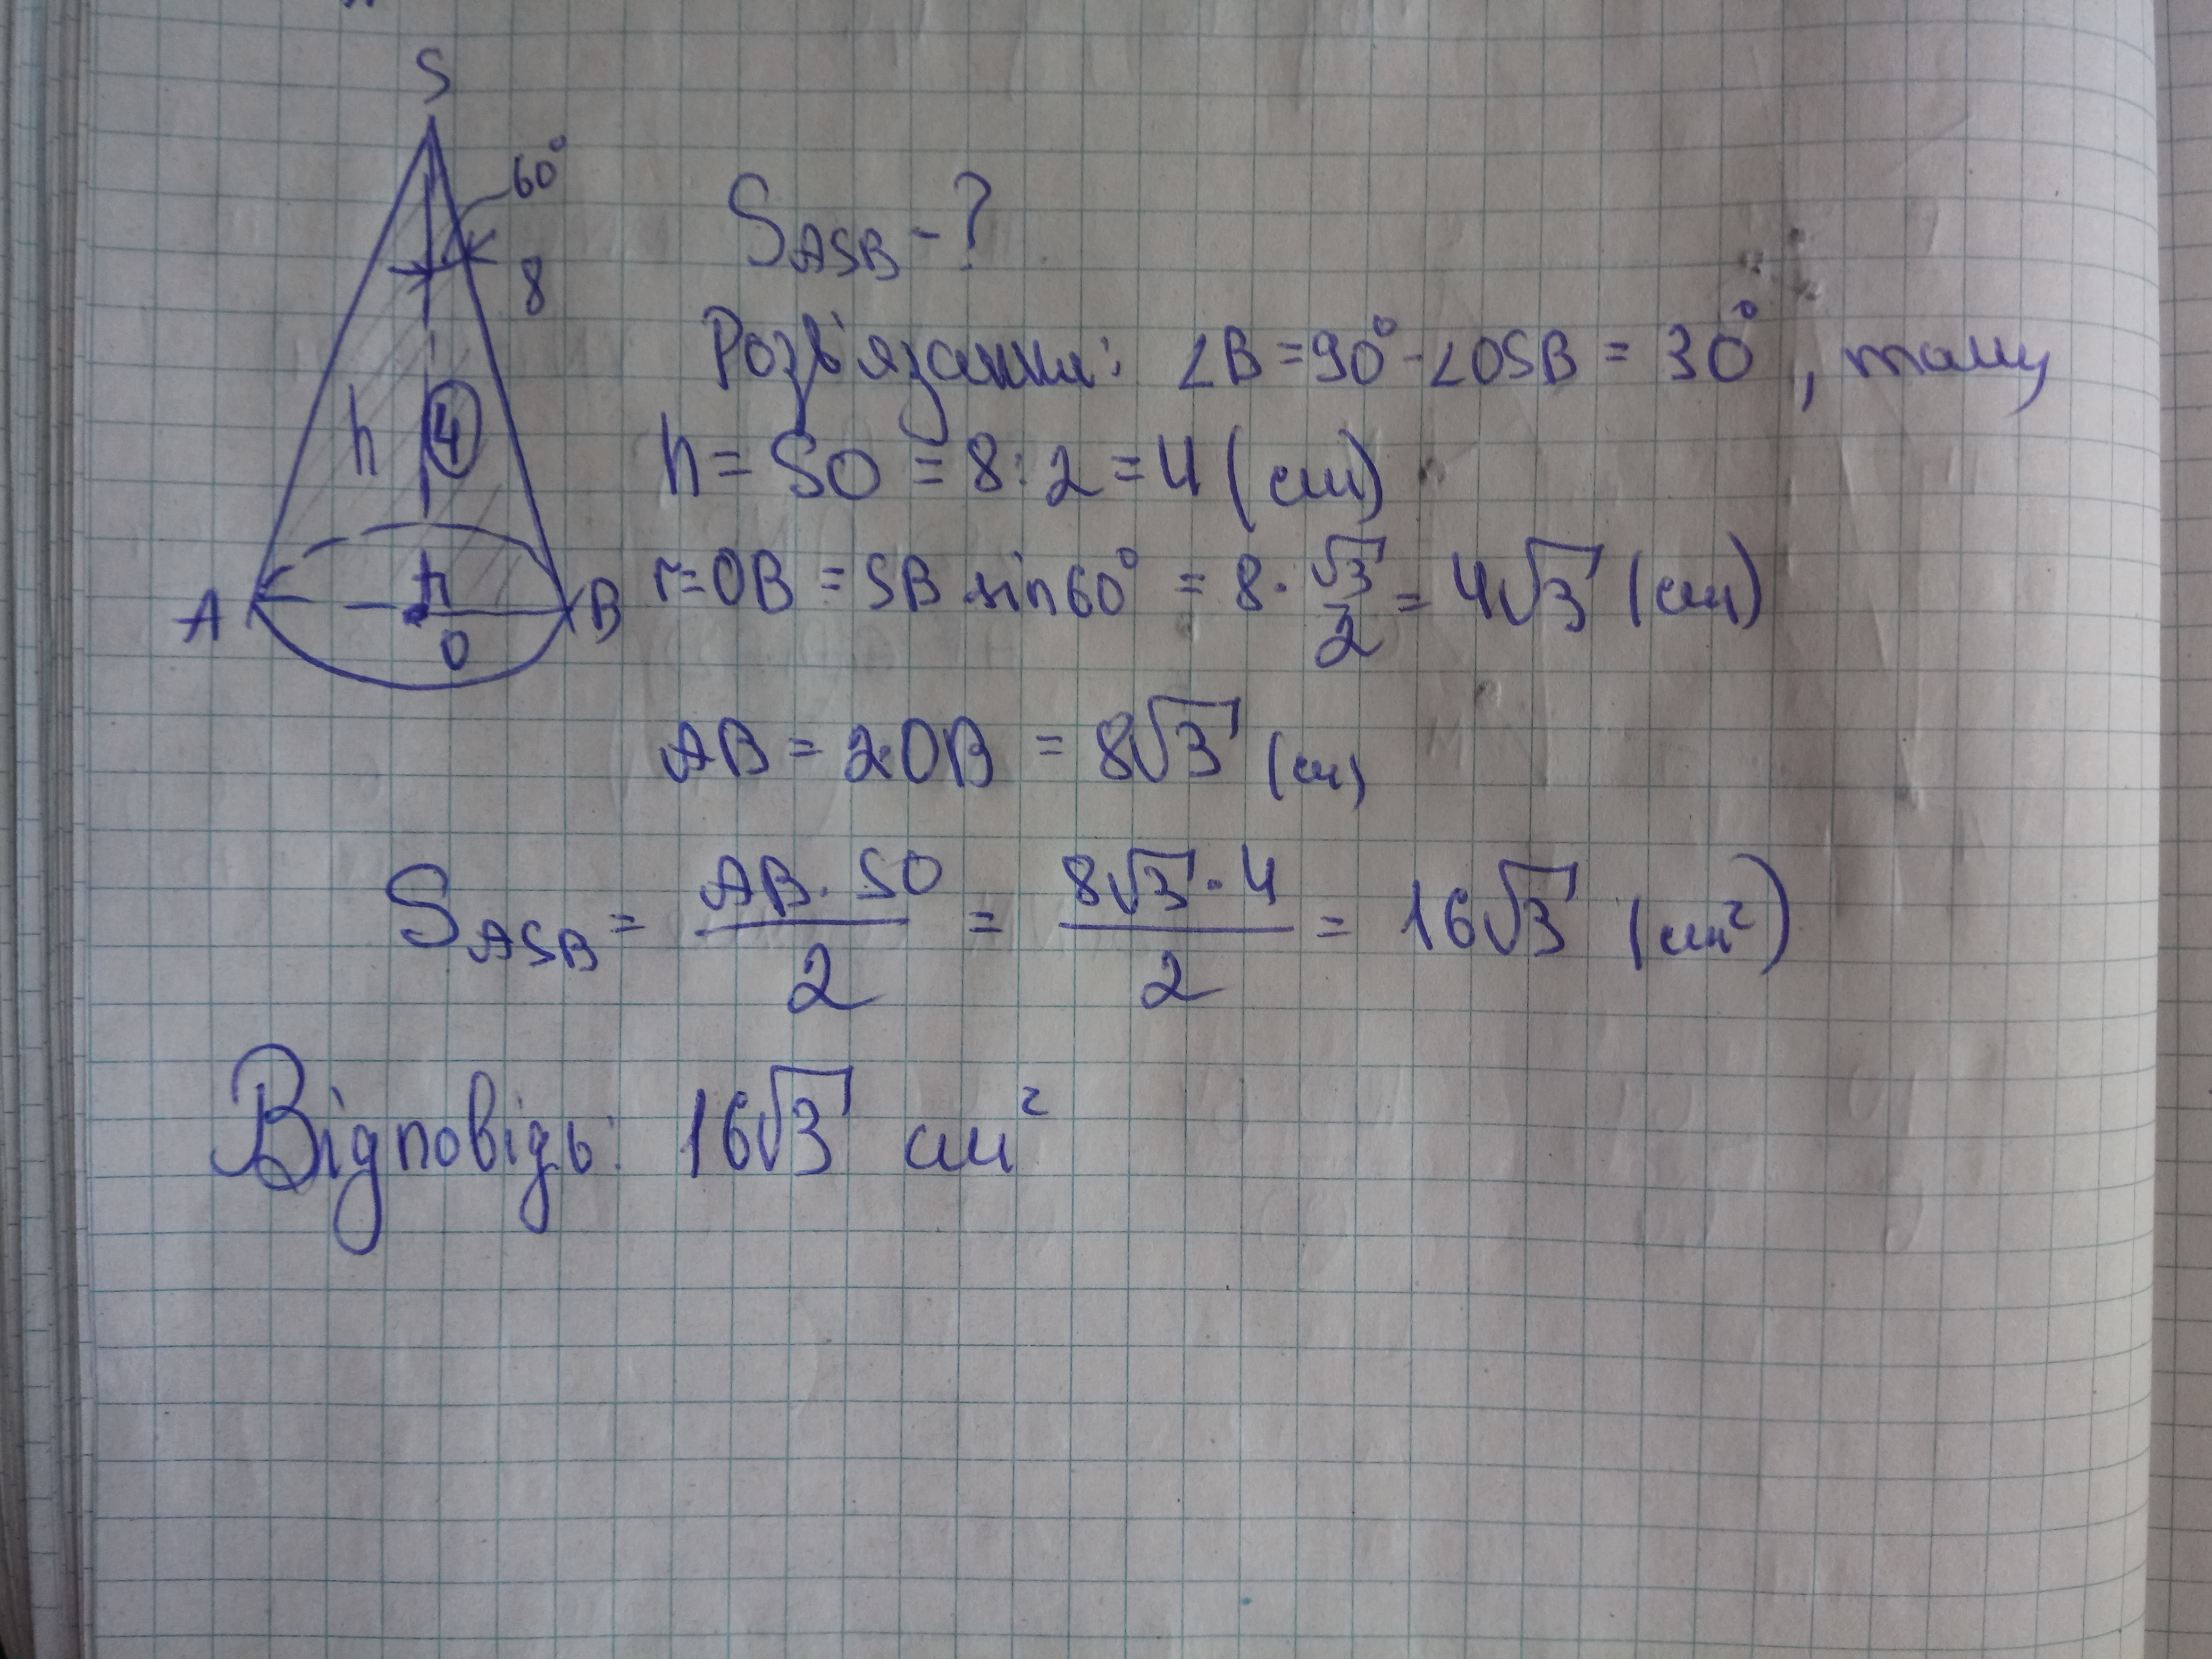 S
60°
8
h
4
A
B
O
S_ASB - ?
Розв'язання: ∠B = 90° - ∠OSB = 30°, тому
h = SO = 8 : 2 = 4 (см)
r = OB = SB sin 60° = 8 · √3/2 = 4√3 (см)
AB = 2·OB = 8√3 (см)
S_ASB = AB · SO / 2 = 8√3 · 4 / 2 = 16√3 (см²)
Відповідь: 16√3 см²